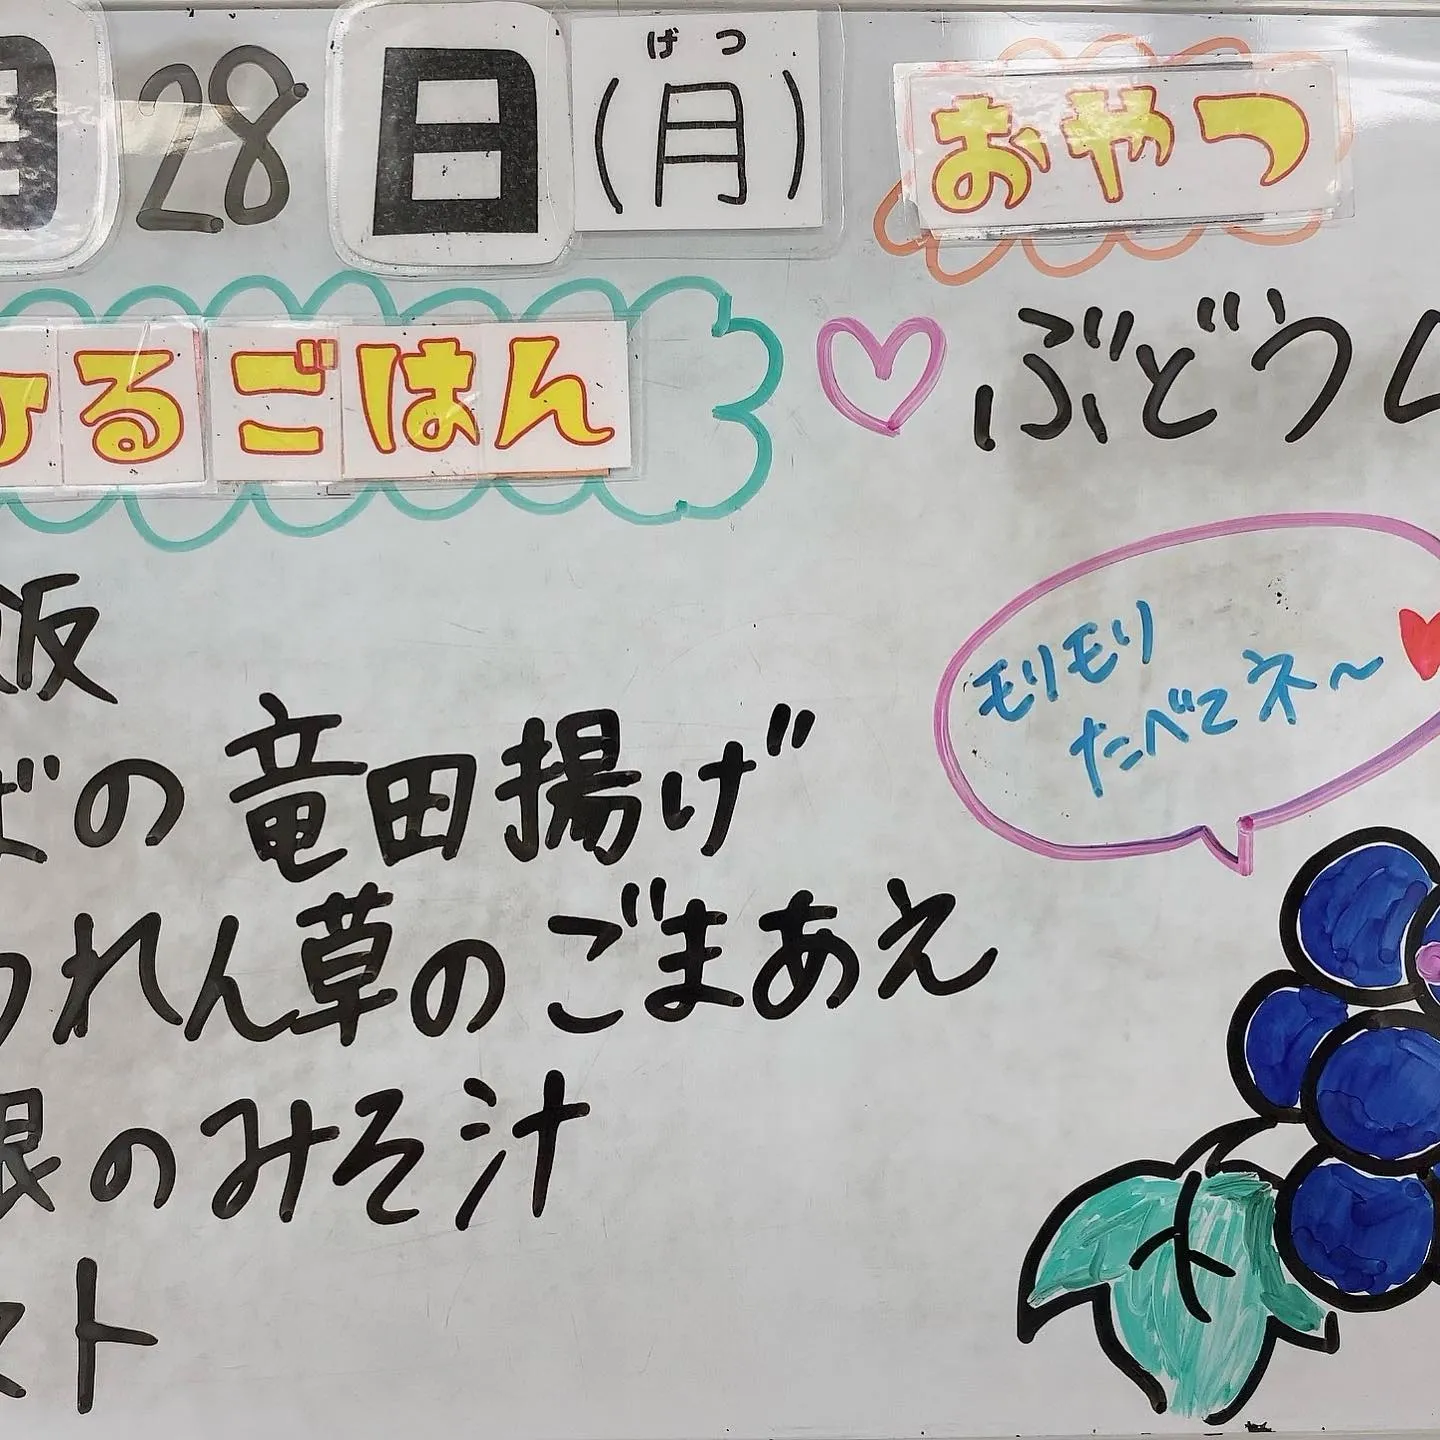 月28日(月)
げつ
おやつ
ひるごはん
ぶどう
飯
ばの竜田揚げ
うれん草のごまあえ
根のみそ汁
スト
モリモリ
たべてネ〜